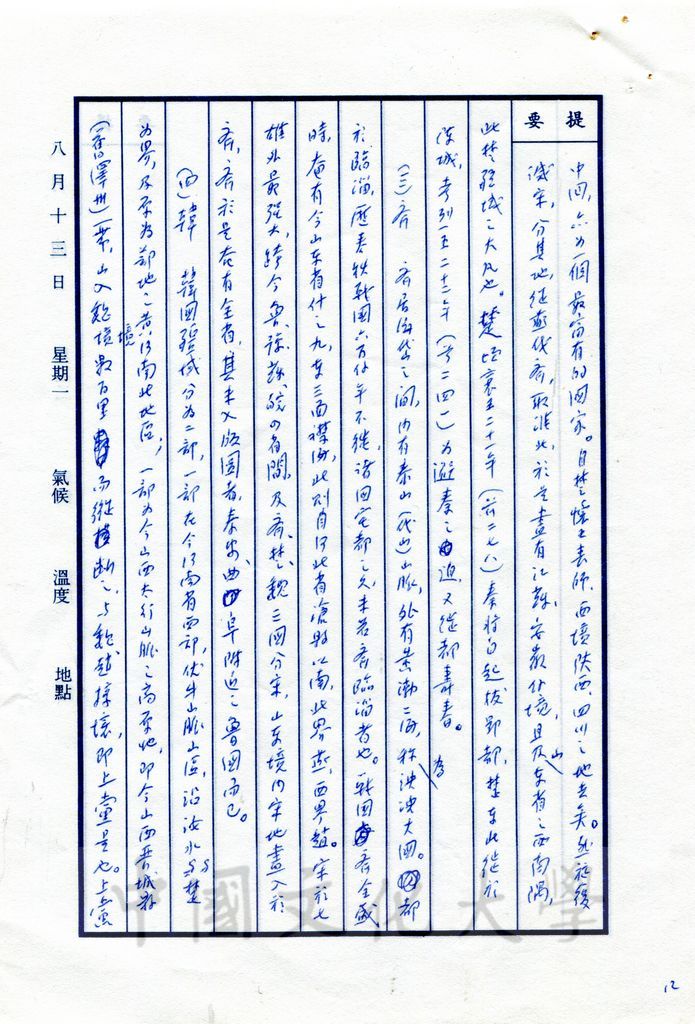 提要
中國，亦為一個最富有的國家。自楚懷王喪師，西境陝西、四川之地去矣。然祚後
滅宋，分其地，從燕伐齊，取淮北，於是盡有江蘇、安徽仆境，且及山東省之西南隅，
此楚疆域之大凡也。楚頃襄王二十一年（前二七八）秦將白起拔郢都，楚東北徙於
陳城，考烈王二十二年（前二四一）為避秦之迫，又徙都壽春。
（三）齊　齊居海岱之間，內有泰山（岱山）山脈，外有黃渤二海，稱為泱泱大國。都
於臨淄，歷春秋戰國六百仆年不徙，諸國宅都之久，未若齊臨淄者也。戰國齊全盛
時，奄有今山東省什之九，東三面襟海，北則自河北省滄縣以南，北界燕，西界趙。宋於七
雄外最強大，跨今魯、豫、蘇、皖四省間，及齊、楚、魏三國分宋，山東境內宋地盡入於
齊，齊於是奄有全省，其未入版圖者，泰安、曲阜附近之魯國而已。
（四）韓　韓國疆域分為二部，一部在今河南省西部，伏牛山脈山區，沿汝水與楚
為界，及原為鄭地之黃河南北地區，一部為今山西太行山脈之高原地，即今山西晉城縣
（舊澤州）一帶，山入魏境數百里而縱斷之，與魏趙接壤，即上黨是也。上黨
八月十三日　星期一　氣候　溫度　地點
中國文化大學
12